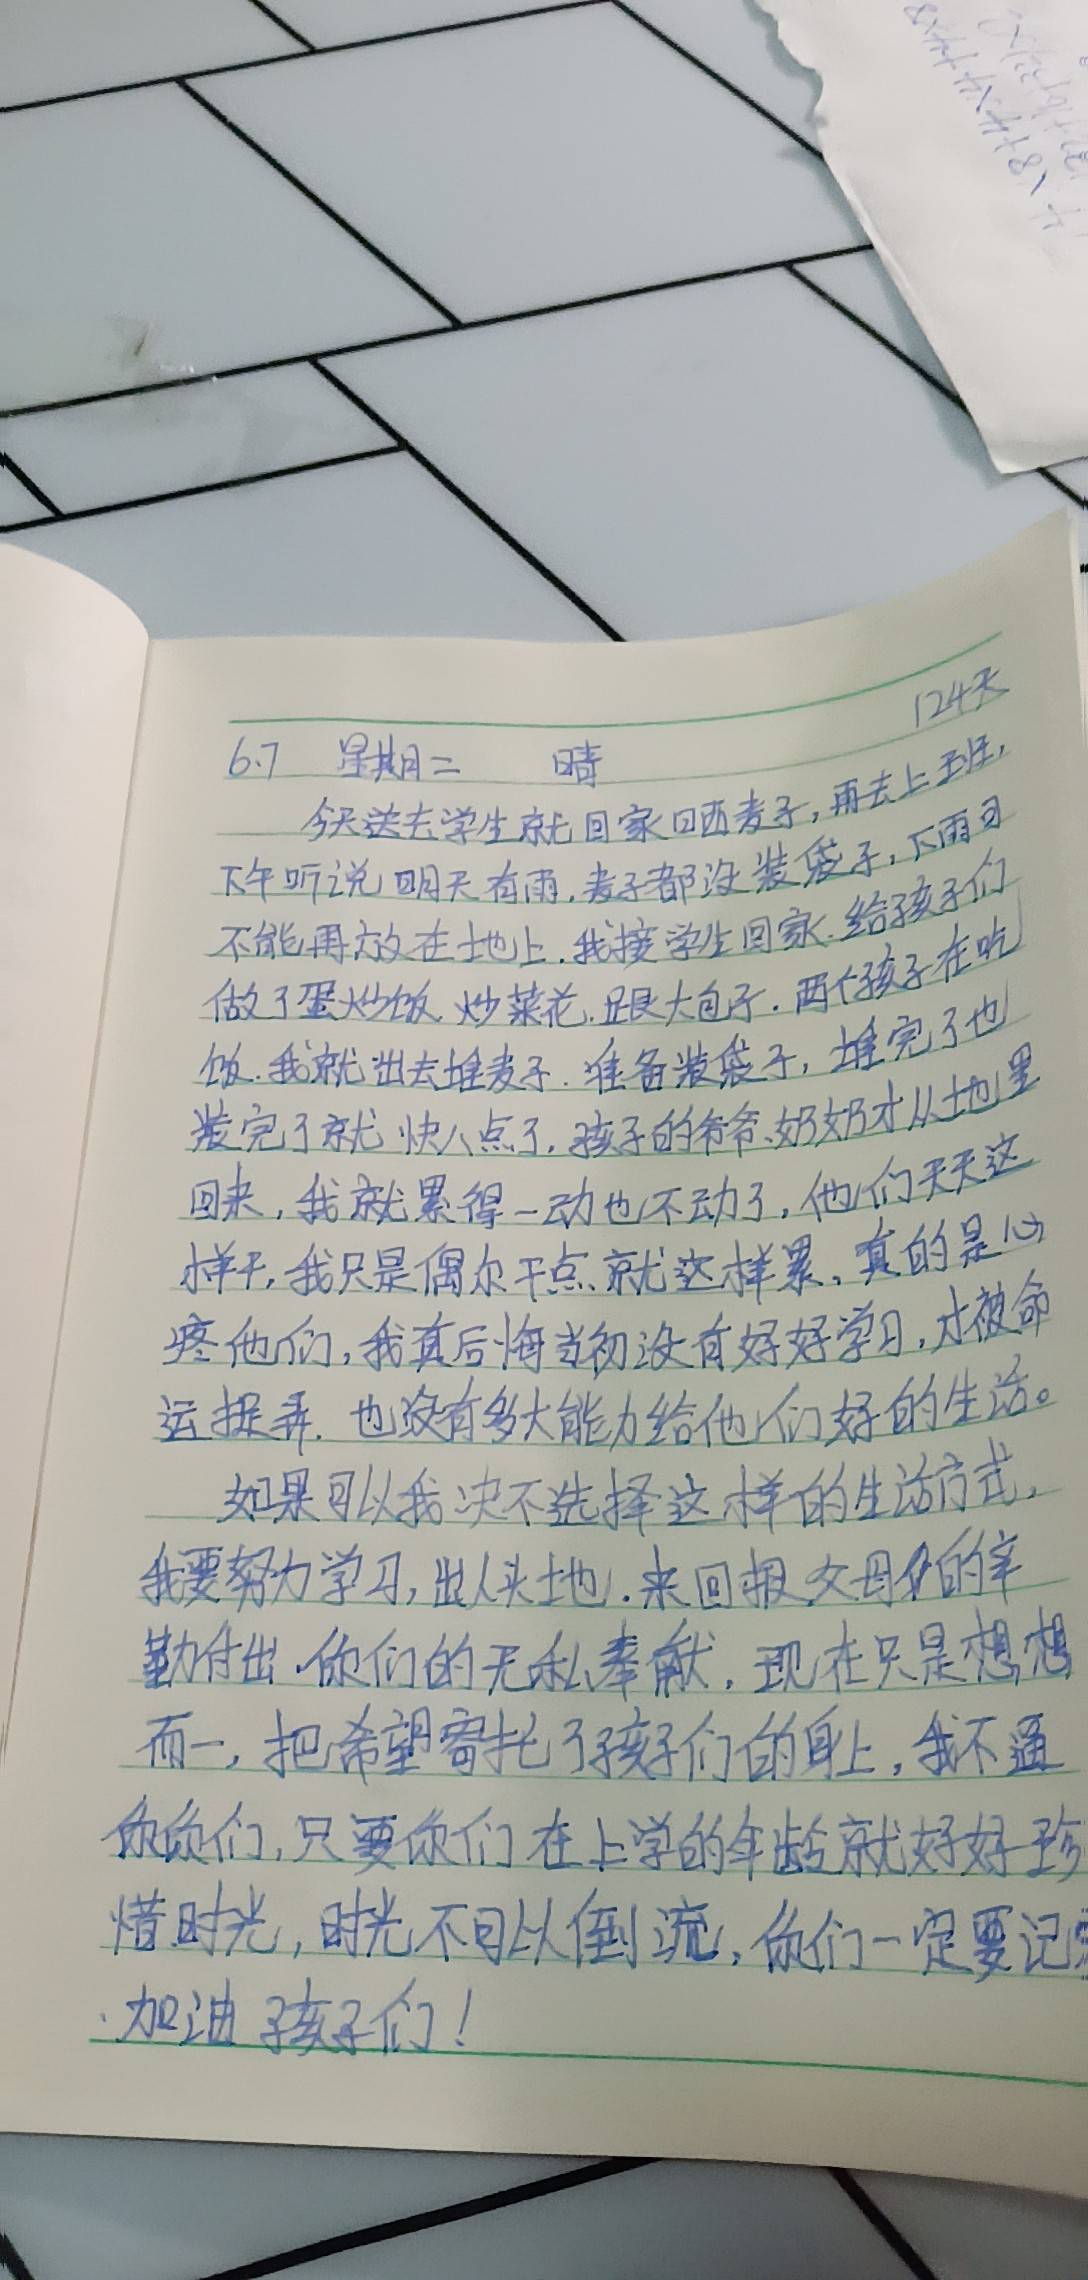 124天
6.7 星期二 晴
今天送去学生就回家晒麦子,再去上班,
下午听说明天有雨.麦子都没装袋子,下雨可
不能再放在地上.我接学生回家.给孩子们
做了蛋炒饭.炒菜花.跟大包子.两个孩子在吃
饭.我就出去堆麦子.准备装袋子,堆完了也
装完了就快八点了,孩子的爷爷、奶奶才从地里
回来,我就累得一动也不动了,他们天天这
样干,我只是偶尔干点、就这样累、真的是心
疼他们,我真后悔当初没有好好学习,才被命
运捉弄.也没有多大能力给他们好的生活。
如果可以我决不选择这样的生活方式,
我要努力学习,出人头地.来回报父母的辛
勤付出.你们的无私奉献,现在只是想想
而一,把希望寄托了孩子们的身上,我不逼
你们,只要你们在上学的年龄就好好珍
惜时光,时光不可以倒流,你们一定要记
.加油孩子们!